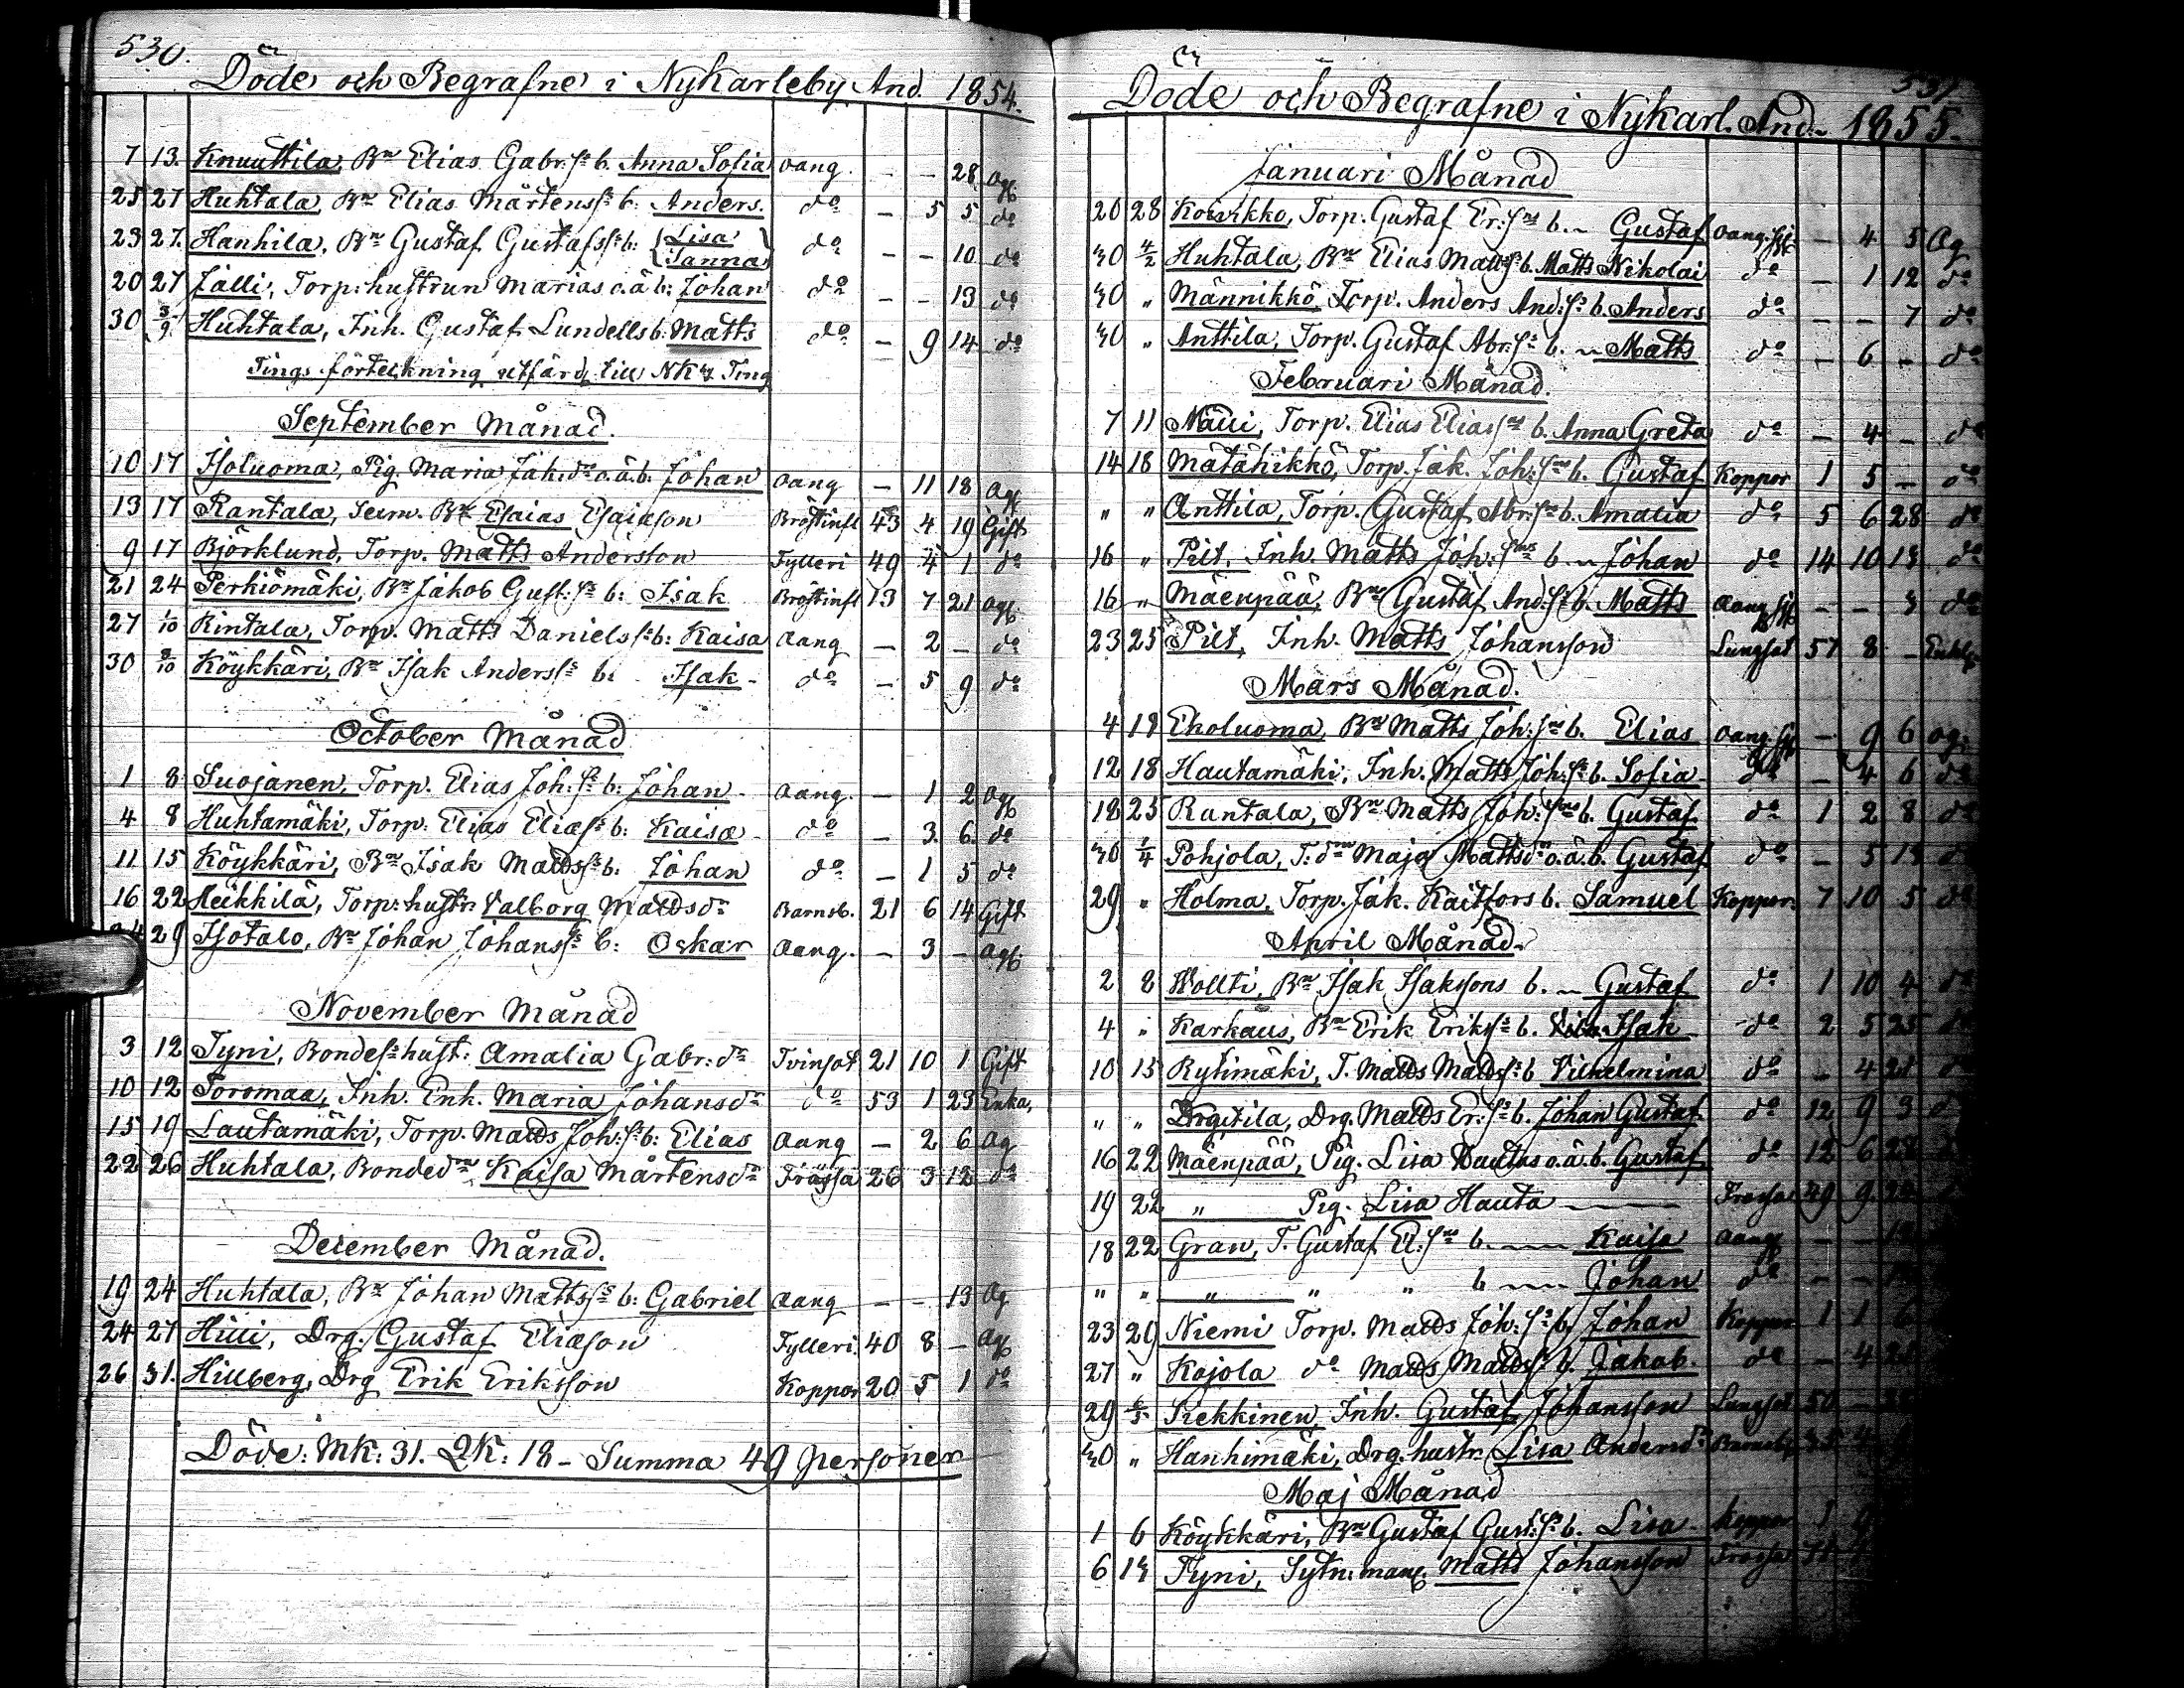 530.
Döde och Begrafne i Nykarleby And. 1854.
7 13. Knuuttila, Bn Elias Gabr:ss b. Anna Sofia Oang. - - 28 Ogf.
25 27 Huhtala, Bn Elias Mårtenss b: Anders. do - 5 5 do
23 27. Hanhila, Bn Gustaf Gustafss b: {Lisa Sanna} do - - 10 do
20 27 Jälli, Torp: hustrun Marias o.ä b: Johan do - - 13 do
30 3/9 Huhtala, Inh. Gustaf Lundells b: Matts do - 9 14 do
Tings förteckning utfärd. till NKby Ting
September Månad.
10 17 Isoluoma, Pig. Maria Jak:dr o.ä.b. Johan Oang - 11 18 Ogf
13 17 Rantala, Bn Esaias Esaiason Bröstinfl 43 4 19 Gift
9 17 Björklund, Torp. Matts Andersson Fylleri 49 4 1 do
21 24 Perkiömäki, Bn Jakob Gust:ss b: Isak Bröstinfl 13 7 21 Ogf.
27 1/10 Rintala, Torp. Matts Danielss b: Kaisa Oang - 2 - do
30 8/10 Köykkäri, Bn Isak Anderss b: Isak - do - 5 9 do
October Månad
1 8 Suojanen, Torp. Elias Joh:ss b: Johan - Oang. - 1 2 Ogf
4 8 Huhtamäki, Torp. Elias Eliæss b: Kaisa - do - 3 6 do
11 15 Köykkäri, Bn Isak Mattss b: Johan do - 1 5 do
16 22 Heikkilä, Torp: hustr. Valborg Mattsdr Barnsb. 21 6 14 Gift
24 29 Isotalo, Bn Johan Johanss b: Oskar Oang. - 3 - Ogf.
November Månad
3 12 Tyni, Bondess hust: Amalia Gabr:dr Tvinsot 21 10 1 Gift
10 12 Soromaa, Inh. Enk. Maria Johansdr do 53 1 23 Enka,
15 19 Lautamäki, Torp. Matts Joh:ss b: Elias Oang - 2 6 Og
22 26 Huhtala, Bondedr Kaisa Mårtensdr Frässa 26 3 12 do
December Månad.
19 24 Huhtala, Bn Johan Mattss b: Gabriel Oang - - 13 Og
24 27 Hilli, Drg. Gustaf Eliason Fylleri. 40 8 - Ogf
26 31. Hillberg, Drg Erik Eriksson Koppor 20 5 1 do
Döde: MK: 31. QK: 18 - Summa 49 personer
531
Döde och Begrafne i Nykarl. And. 1855.
Januari Månad
20 28 Koivikko, Torp. Gustaf Er:sns b. Gustaf Oang. - 4 5 Og
30 4/2 Huhtala, Bn Elias Mattss b. Matts Nikolai do - 1 12 do
30 " Männikkö, Torp. Anders And:ss b. Anders do - - 7 do
30 " Anttila, Torp. Gustaf Abr:ss b. Matts do - 6 - do
Februari Månad.
7 11 Torp. Elias Eliassns b. Anna Greta do - 4 - do
14 18 Mätähikkö, Torp. Jak. Joh:sns b. Gustaf Koppor 1 5 - do
" " Anttila, Torp. Gustaf Abr:ss b. Amalia do 5 6 28 do
16 " Pilt, Inh. Matts Joh:sns b. Johan do 14 10 13 do
16 " Mäenpää, Bn Gustaf And:ss b. Matts Oang - - 3 do
23 25 Pilt, Inh. Matts Johansson Lungsot 57 8 - Enkl.
Mars Månad.
4 18 Ekoluoma, Bn Matts Joh:sns b. Elias Oang - 9 6 Og.
12 18 Hautamäki, Inh. Matts Joh:ss b. Sofia - do - 4 6 do
18 25 Rantala, Bn Matts Joh:sns b. Gustaf do 1 2 8 do
30 1/4 Pohjola, T:dr Maja Mattsdr o.ä.b. Gustaf do - 5 13 do
29 " Holma, Torp. Jak. Kaitfors b. Samuel Koppor. 7 10 5 do
April Månad.
2 8 Wollti, Bn Isak Isakssons b. Gustaf do 1 10 4 do
4 " Karkaus, Bn Erik Erikss b. Isak do 2 5 25 do
10 15 Rytimäki, T. Matts Mattss b. Vilhelmina do - 4 21 do
" " Drg. Matts Er:ss b. Johan Gustaf do 12 9 3 do
16 22 Mäenpää, Pig. Lisa Hautas o.ä.b. Gustaf do 12 6 28
19 22 " Pig. Lisa Hauta Frossa 49 9
18 22 Gran, T. Gustaf El:sns b. Kaisa Oang - -
" " " " " b Johan do - -
23 29 Niemi Torp. Matts Joh:ss b. Johan Koppor 1 1 6
27 " Kojola do Matts Mattss b. Jakob. do - 4
29 6/5 Kekkinen, Inh. Gustaf Johansson Lungsot 50 -
30 " Hanhimäki, Drg. hustr. Lisa Andersdr Barnsb.
Maj Månad
1 6 Köykkäri, Bn Gustaf Gust:ss b. Lisa - Koppor 1
6 13 Tyni, Sytn:man Matts Johansson Frossa